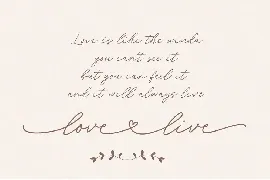 Love is like the winds
you can't see it
but you can feel it
and it will always live
love live